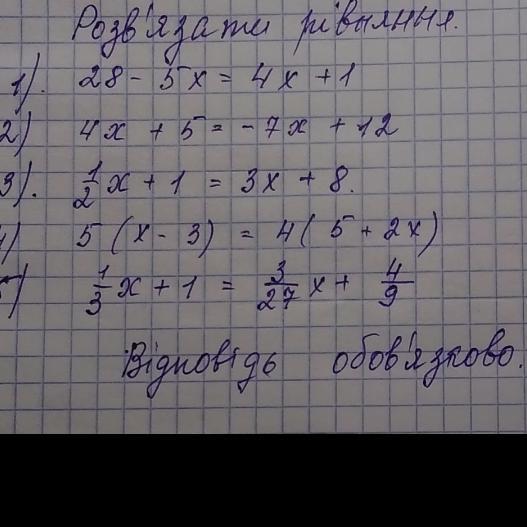 Розв'язати рівняння.
1). 28 - 5x = 4x + 1
2) 4x + 5 = -7x + 12
3). 1/2 x + 1 = 3x + 8.
4) 5 (x - 3) = 4( 5 + 2x)
5) 1/3 x + 1 = 3/27 x + 4/9
Відповідь обов'язково.